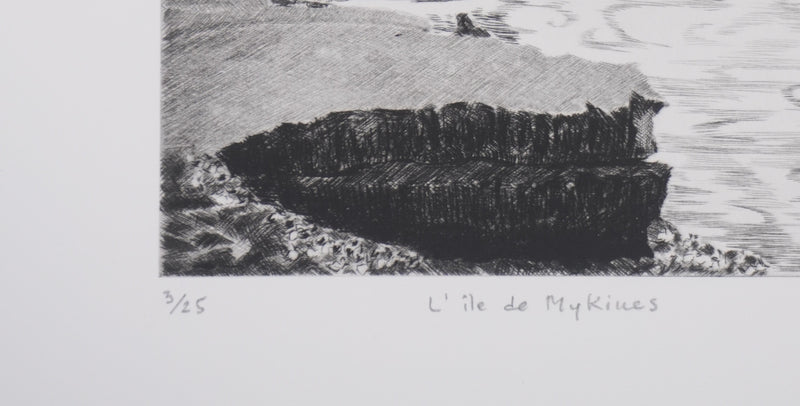 3/25
L' île de Mykines